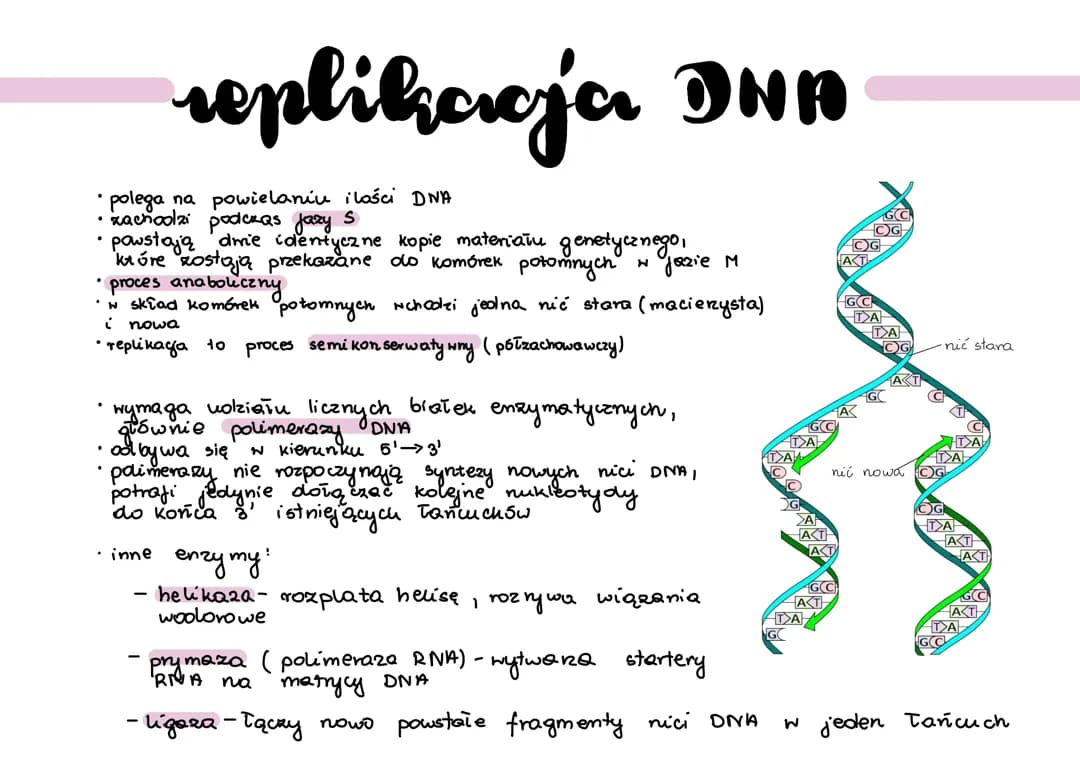 replikacja DNA
• polega na powielaniu ilości DNA
• zachodzi podczas fazy S
• powstają dwie identyczne kopie materiału genetycznego,
które zostają przekazane do komórek potomnych w fazie M
• proces anaboliczny
• w skład komórek potomnych wchodzi jedna nić stara (macierzysta)
i nowa
• replikacja to proces semikonserwatywny (półzachowawczy)
• wymaga udziału licznych białek enzymatycznych,
głównie polimerazy DNA
• odbywa się w kierunku 5'→3'
• polimerazy nie rozpoczynają syntezy nowych nici DNA,
potrafi jedynie dołączać kolejne nukleotydy
do końca 3' istniejących łańcuchów
• inne enzymy:
- helikaza - rozplata helisę, rozrywa wiązania
wodorowe
- prymaza (polimeraza RNA) - wytwarza startery
RNA na matrycy DNA
- ligaza - łączy nowo powstałe fragmenty nici DNA w jeden łańcuch
GC
CG
CG
AT
GC
TA
TA
CG
nić stara
AT
GC
C
A
T
GC
C
TA
TA
TA
TA
nić nowa
CG
C
C
G
CG
A
TA
AT
AT
AT
AT
GC
GC
AT
AT
TA
TA
G
GC